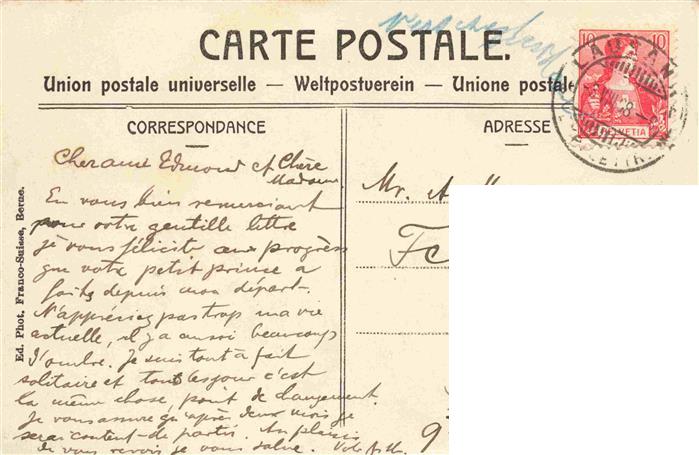 CARTE POSTALE.
Union postale universelle — Weltpostverein — Unione postale
CORRESPONDANCE
Cher ami Edmond et Chère
Madame.
En vous bien remerciant
pour votre gentille lettre
je vous félicite aux progrès
que votre petit prince a
faits depuis mon départ.
N'appréciez pas trop ma vie
actuelle, il y a aussi beaucoup
d'ombre. Je suis tout à fait
solitaire et tous les jours c'est
la même chose, point de changement.
Je vous assure qu'après deux mois je
serai content de partir. Au plaisir
de vous revoir je vous salue.
ADRESSE
Mr. A
9
Ed. Phot. Franco-Suisse, Berne.
10 10
HELVETIA
LAUSANNE